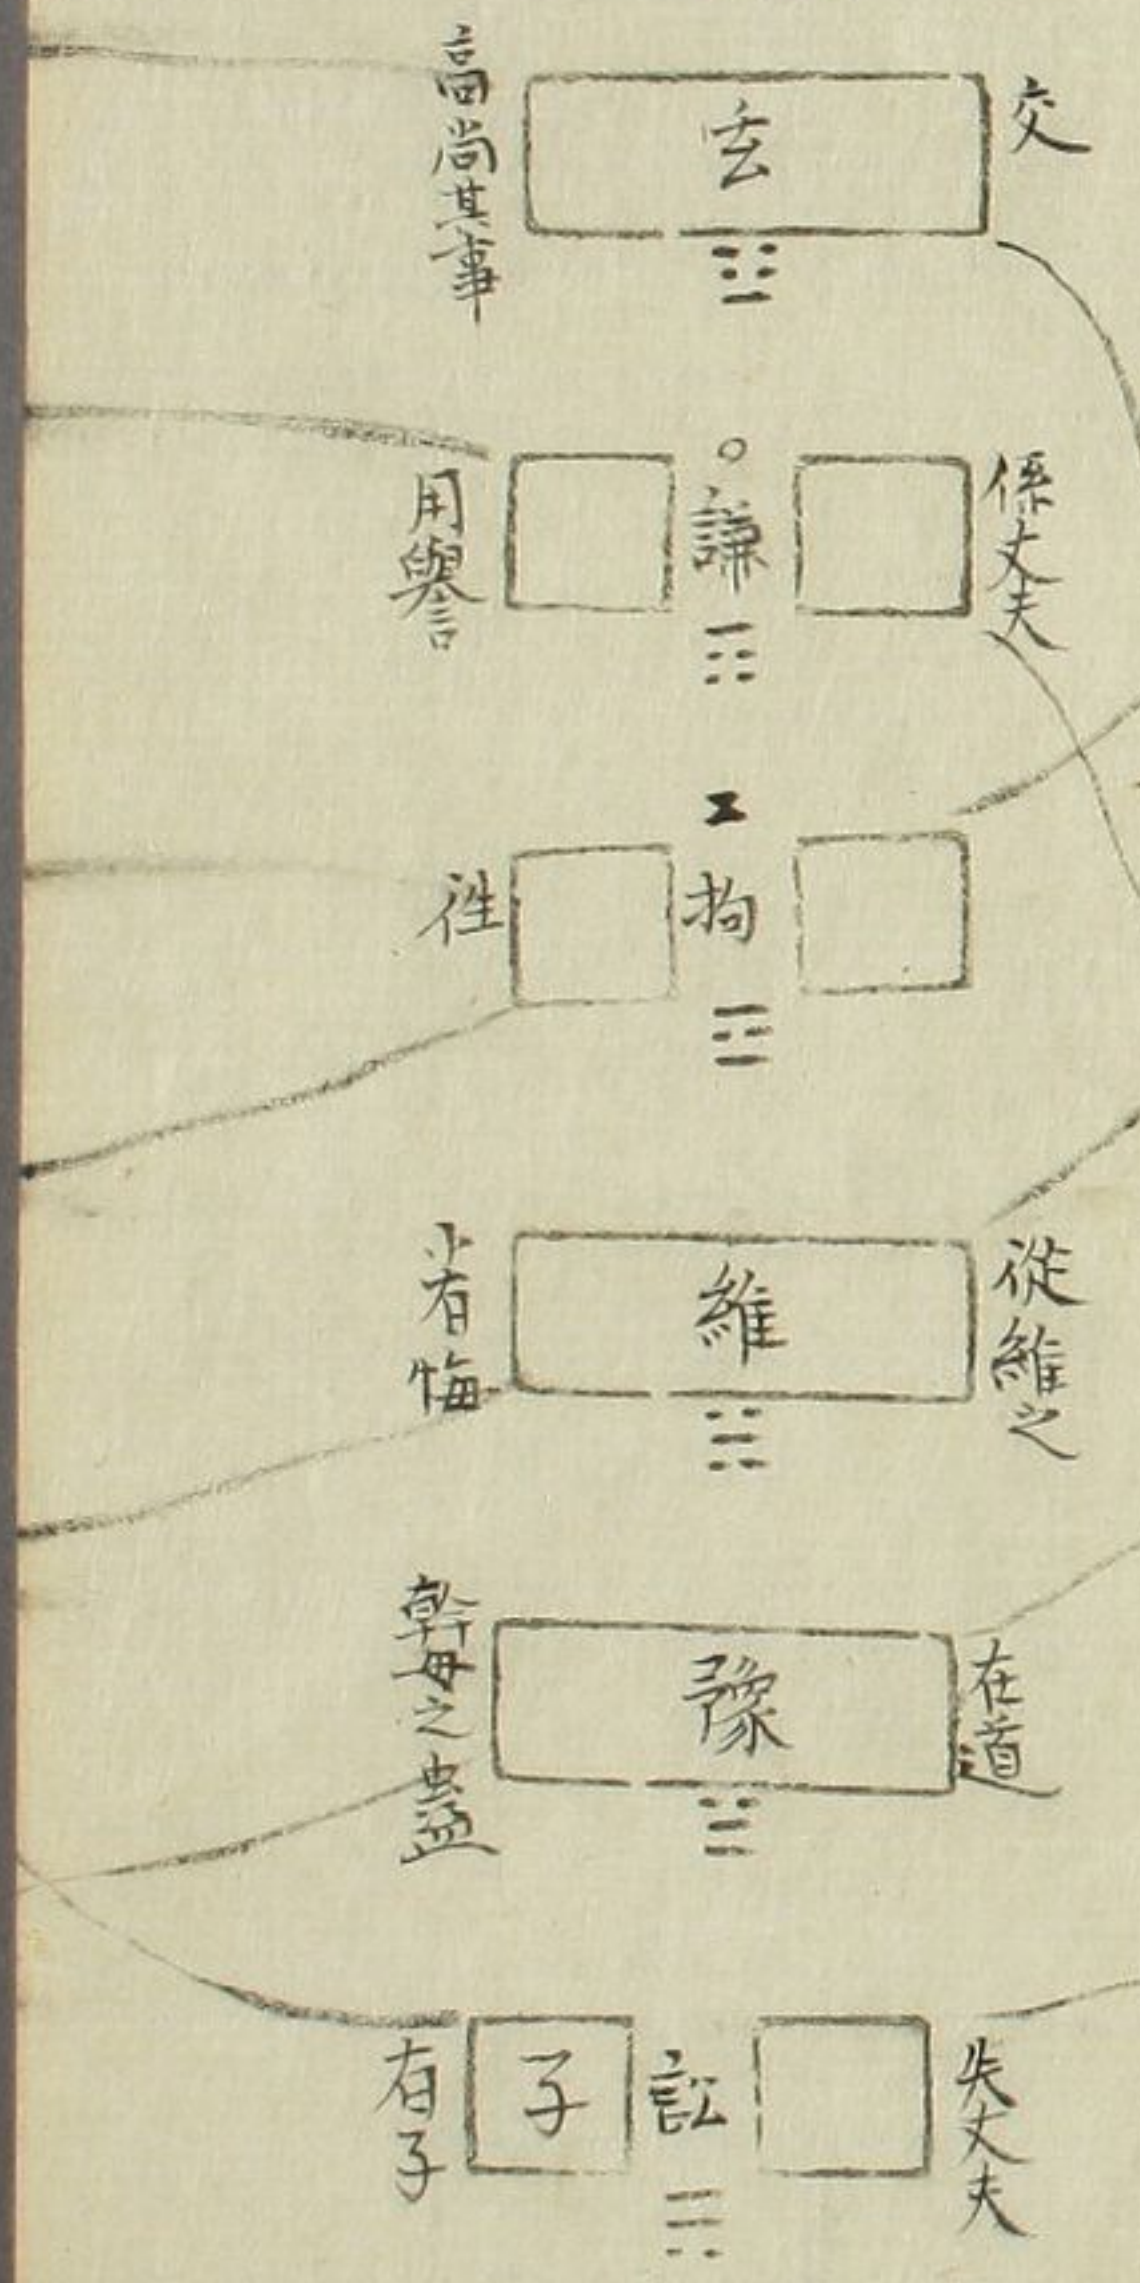 交
玄
高尚其事
係丈夫
謙
用譽
拘
徃
從維之
維
小有悔
在道
豫
幹母之蠱
失丈夫
訟
子
有子